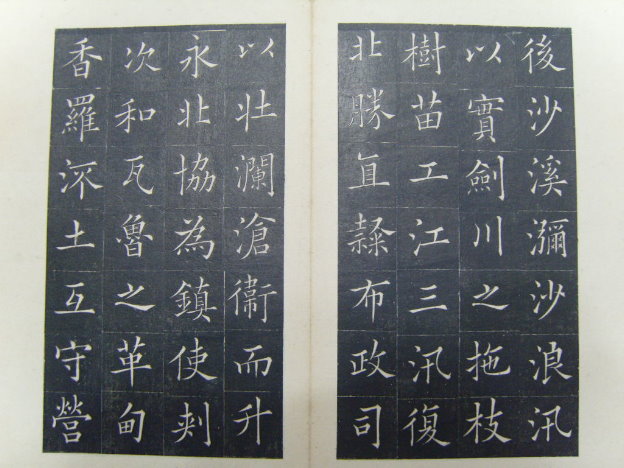 後沙溪瀰沙浪汛
以實劍川之拖枝
樹苗工江三汛復
北勝直隸布政司
以壯瀾滄衛而升
永北協為鎮使剌
次和瓦魯之革甸
香羅土互守營